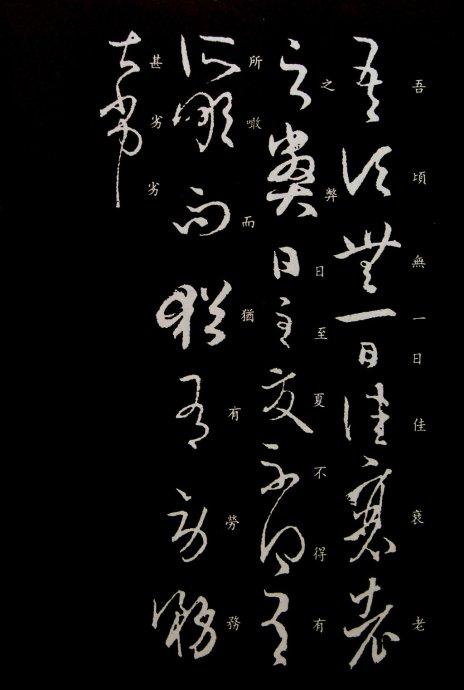 吾頃無一日佳衰老
之弊日至夏不得有
所噉而猶有勞務
甚劣劣